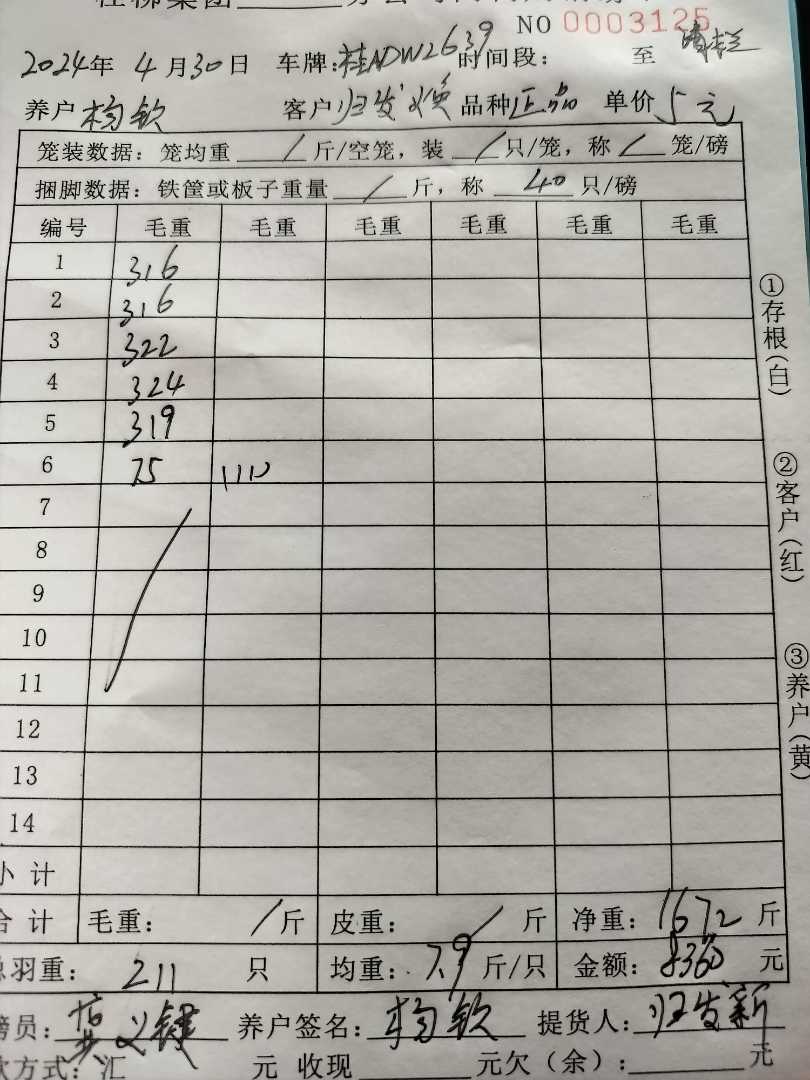 桂柳集团
NO 0003125
2024年 4月30日 车牌:桂NDW2639 时间段: 至 清栏
养户 杨钦 客户 归发 品种 正品 单价 5元
笼装数据: 笼均重 / 斤/空笼, 装 / 只/笼, 称 / 笼/磅
捆脚数据: 铁筐或板子重量 / 斤, 称 40 只/磅
编号 毛重 毛重 毛重 毛重 毛重 毛重
1 316
2 316
3 322
4 324
5 319
6 75
7
8
9
10
11
12
13
14
小计
合计 毛重: / 斤 皮重: / 斤 净重: 1672 斤
总羽重: 211 只 均重: 7.9 斤/只 金额: 8360 元
磅员: 义键 养户签名: 杨钦 提货人: 归发新
款方式: 汇 元 收现 元欠(余): 元
①存根(白)
②客户(红)
③养户(黄)